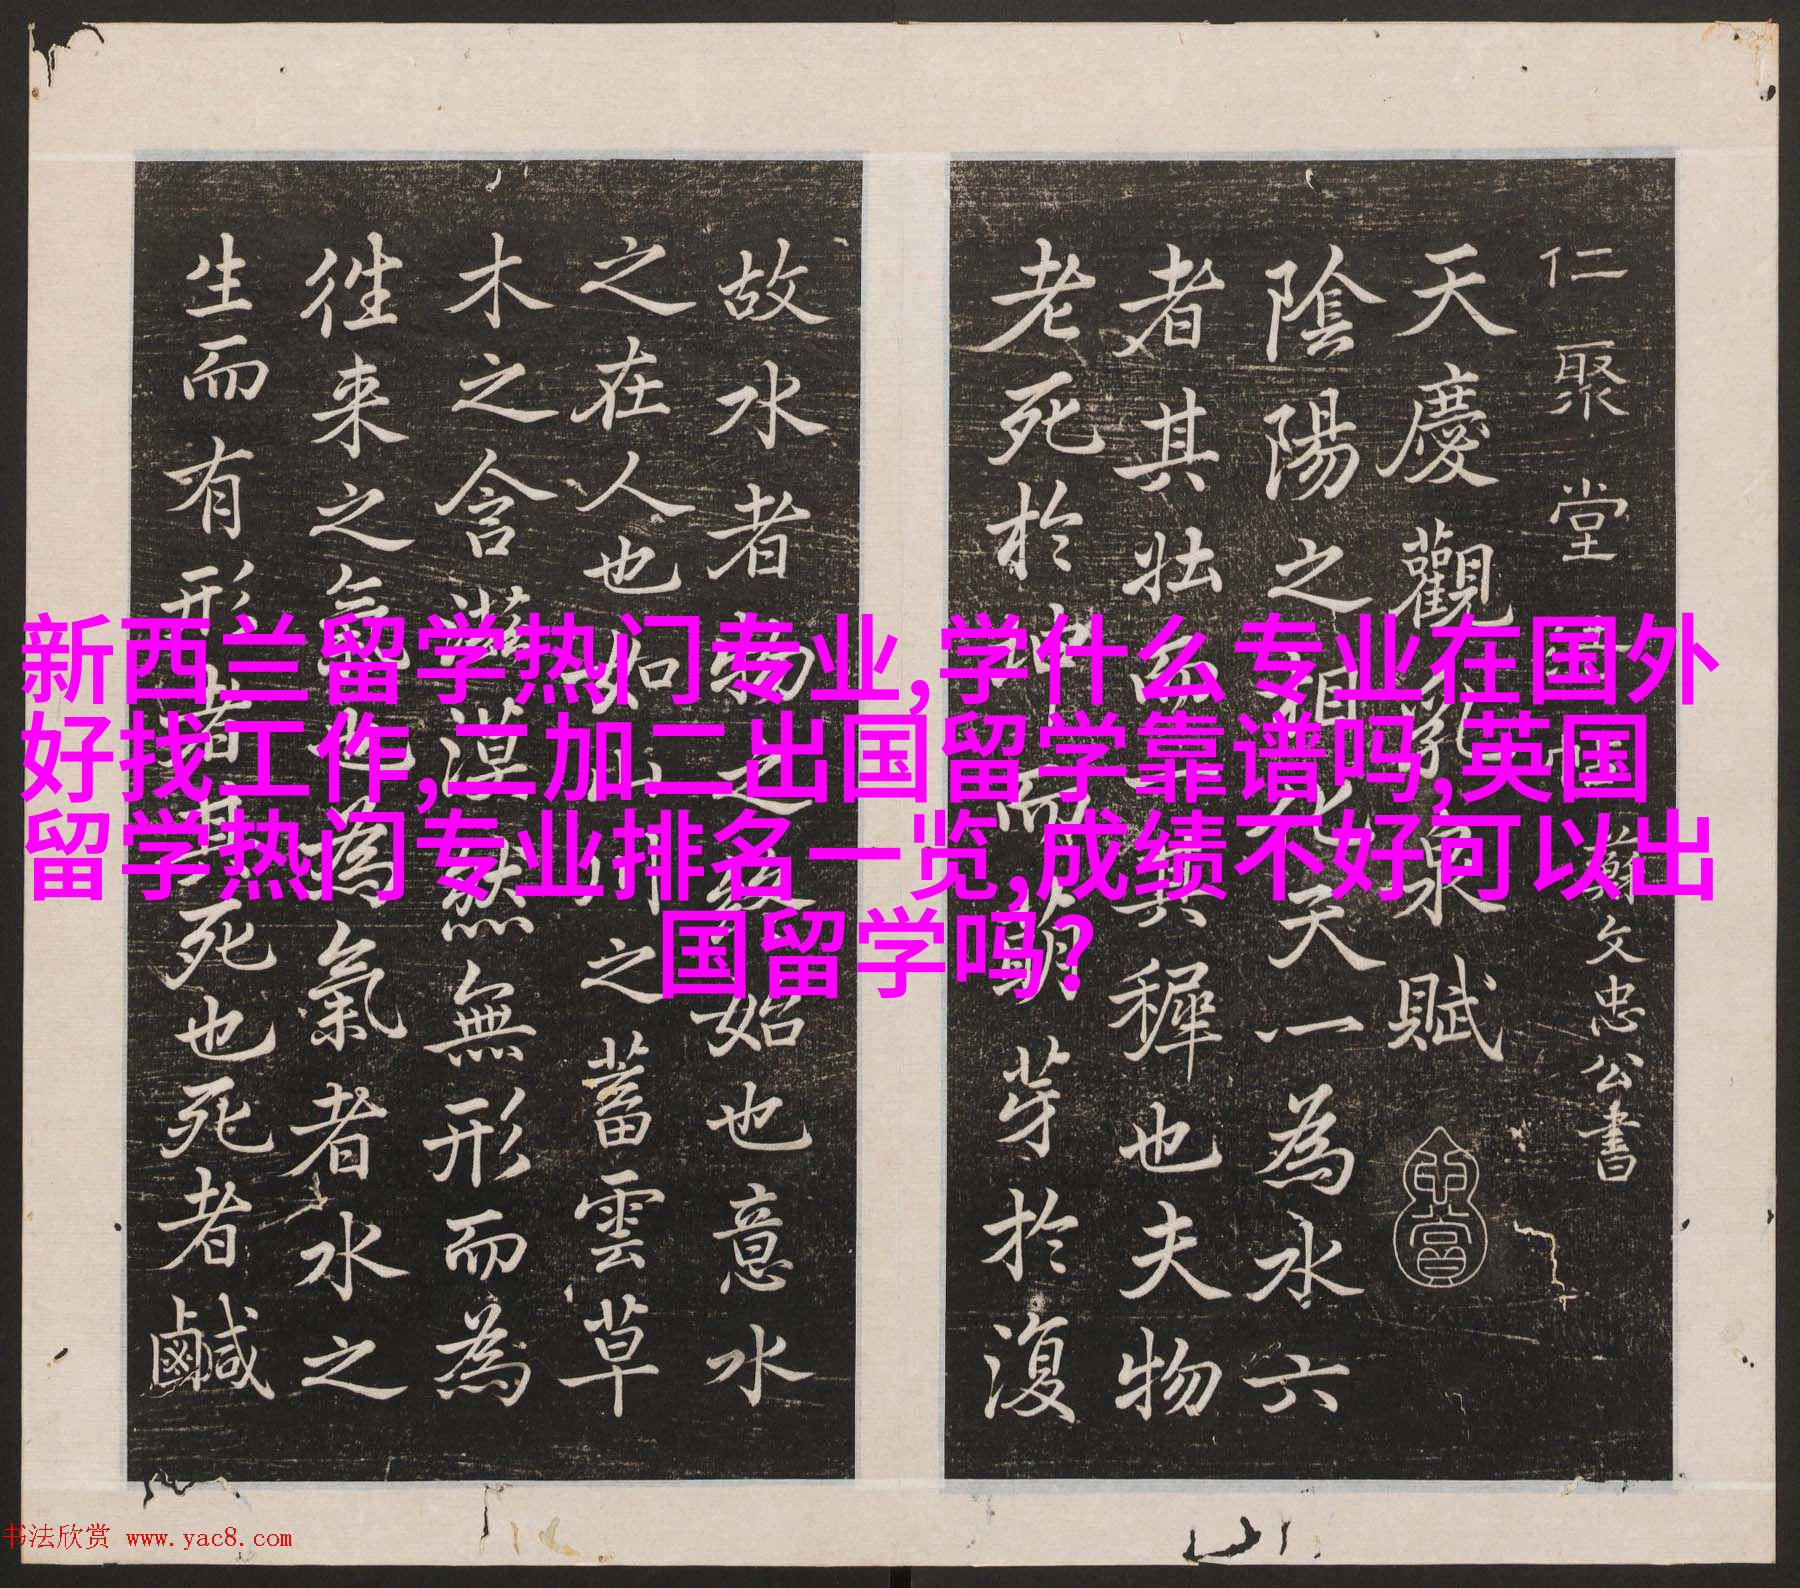 新西兰留学热门专业,学什么专业在国外
好找工作,二加二出国留学靠谱吗,英国
留学热门专业排名一览,成绩不好可以出
国留学吗?
仁聚堂 蘇文忠公書
天慶觀乳泉賦
陰陽之相化天一為水六
者其壯而其穉也夫物
老死於坤而萌芽於復
故水者物之終始也意水
之在人也如山川之蓄雲草
木之含滋漠然無形而為
往来之氣也為氣者水之
生而有形者其死也死者鹹
书法欣赏 www.yac8.com